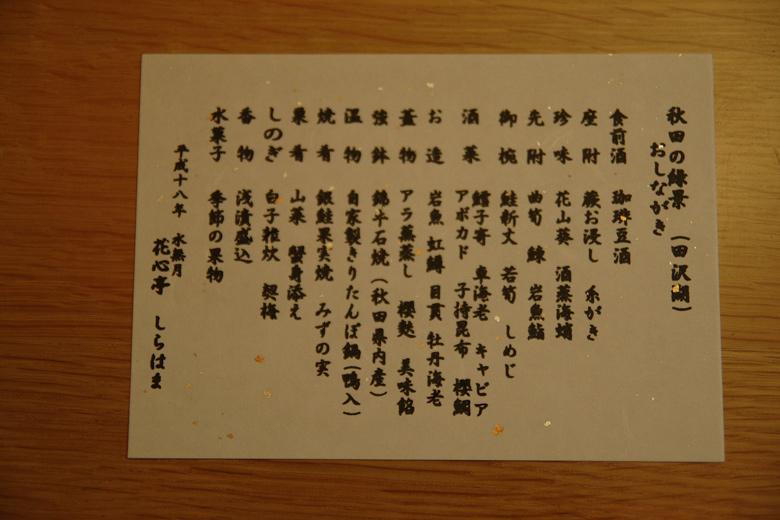 秋田の緑景 (田沢湖)
おしながき
食前酒 珈琲豆酒
座附 蕨お浸し 糸がき
珍味 花山葵 酒蒸海蛸
先附 曲筍 鰊 岩魚鮨
御椀 鮭新丈 若筍 しめじ
酒菜 鱈子寄 車海老 キャビア
アボカド 子持昆布 櫻鯛
お造 岩魚 虹鱒 目貫 牡丹海老
蓋物 アラ蕪蒸し 櫻麩 美味餡
強鉢 錦牛石焼(秋田県内産)
温物 自家製きりたんぽ鍋(鴨入)
焼肴 銀鮭果実焼 みずの実
菜肴 山菜 蟹身添え
しのぎ 白子雑炊 梅
香物 浅漬盛込
水菓子 季節の果物
平成十八年 水無月
花心亭 しらはま